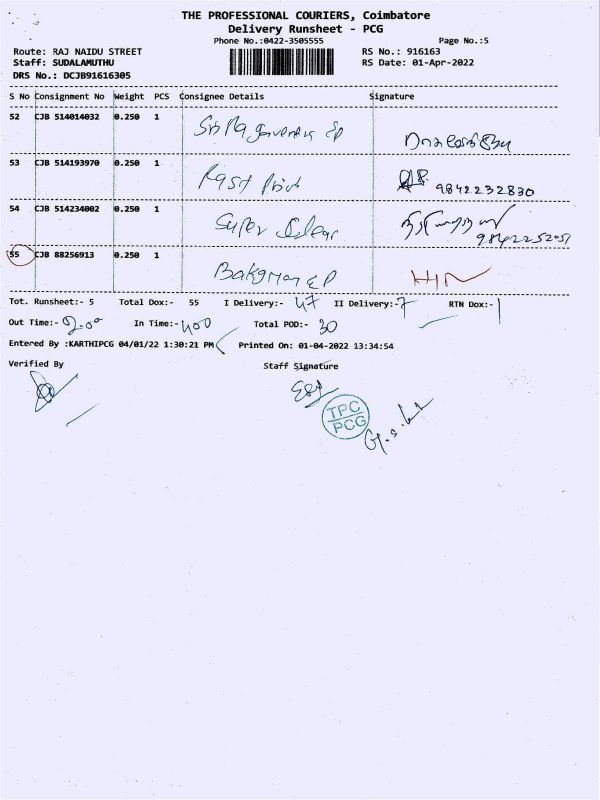 THE PROFESSIONAL COURIERS, Coimbatore
Delivery Runsheet - PCG
Phone No.:0422-3505555 Page No.:5
Route: RAJ NAIDU STREET RS No.: 916163
Staff: SUDALAMUTHU RS Date: 01-Apr-2022
DRS No.: DCJB91616305
S No Consignment No Weight PCS Consignee Details Signature
52 CJB 514014032 0.250 1
53 CJB 514193970 0.250 1 9842232830
54 CJB 514234002 0.250 1 Super
55 CJB 88256913 0.250 1
Tot. Runsheet:- 5 Total Dox:- 55 I Delivery:- 47 II Delivery:- 7 RTN Dox:- 1
Out Time:- 2.00 In Time:- 400 Total POD:- 30
Entered By :KARTHIPCG 04/01/22 1:30:21 PM Printed On: 01-04-2022 13:34:54
Verified By Staff Signature
TPC
PCG